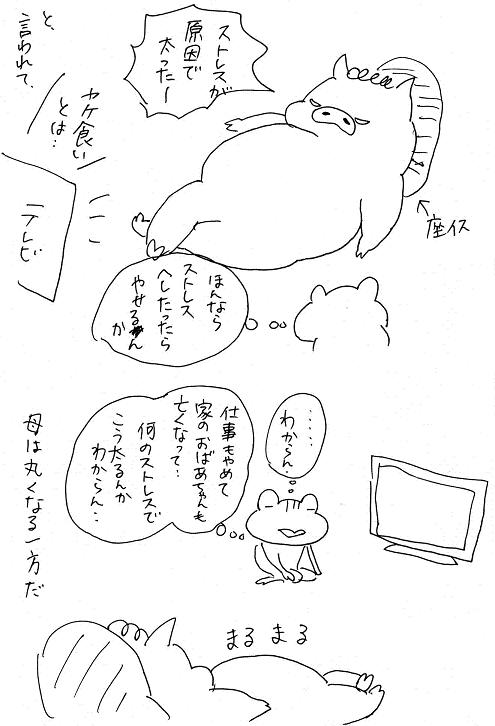 ストレスが
原因で
太ったー
と、
言われて、
ヤケ食い
とは…
テレビ
座イス
ほんなら
ストレス
へしたったら
やせるん
か
……
わからん
仕事もやめて
家のおばあちゃんも
亡くなって…
何のストレスで
こう太るんか
わからん…
母は丸くなる一方だ
まるまる